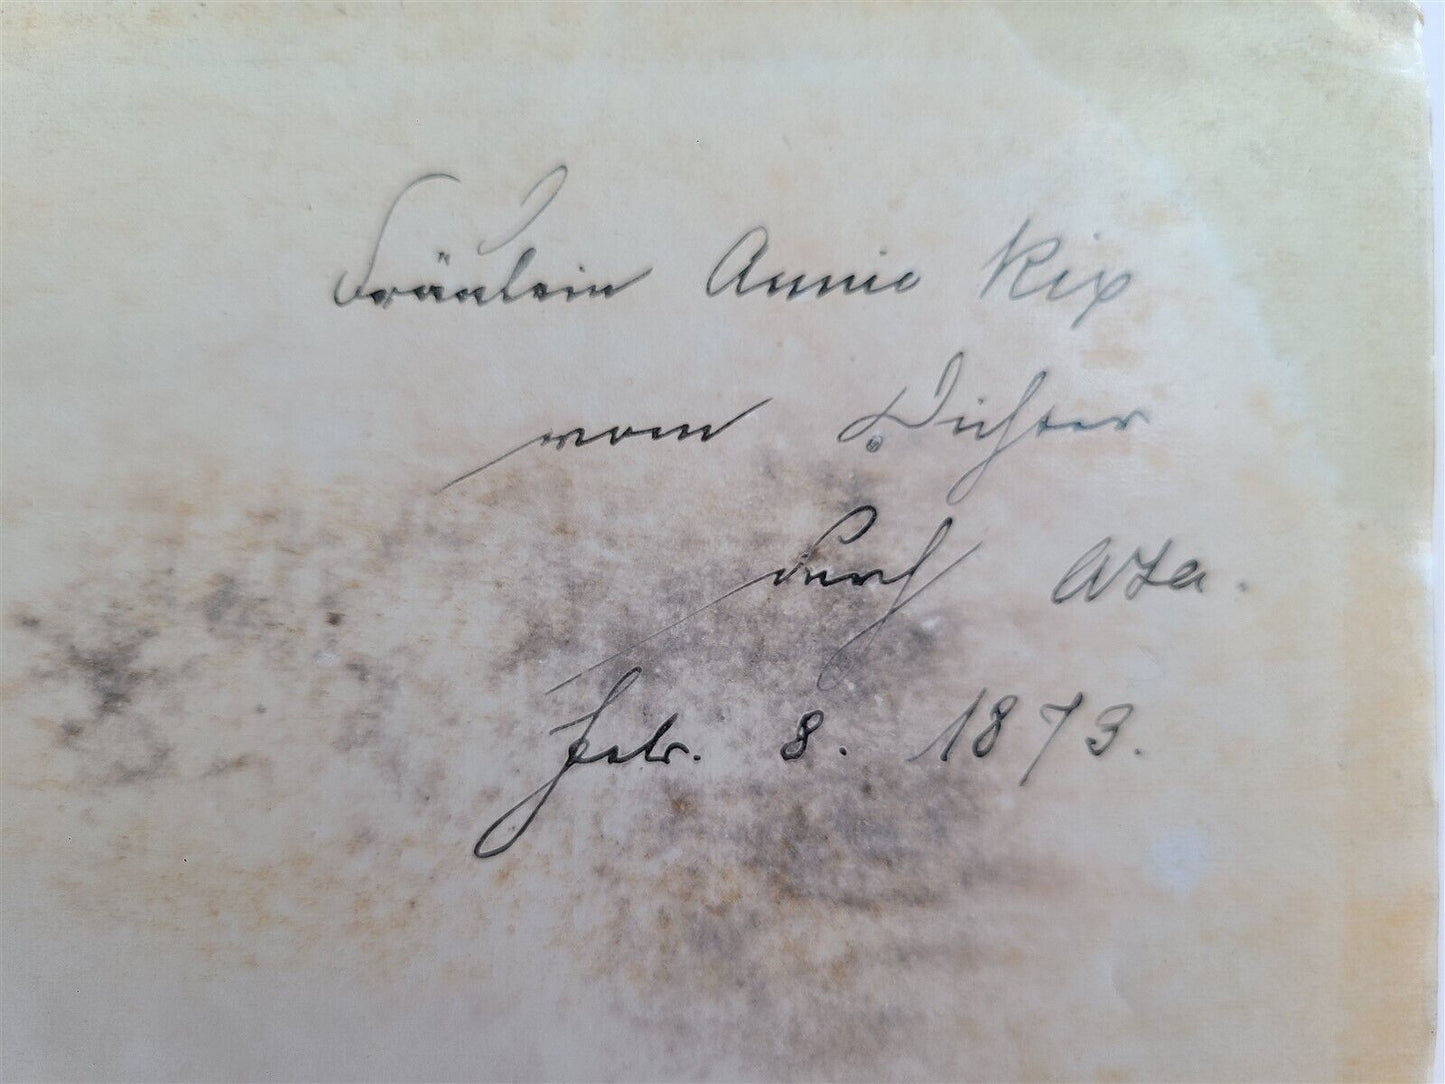 Fräulein Annie Rix
vom Dichter
durch Ata.
Febr. 8. 1873.